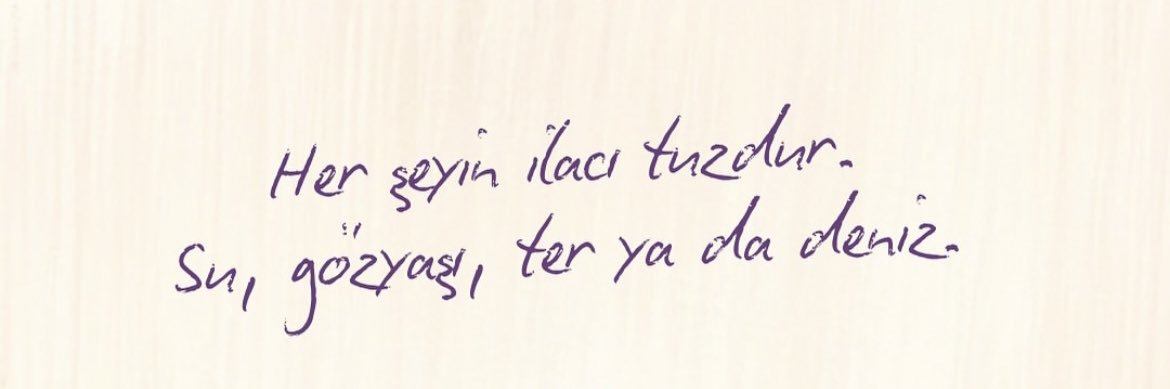 Her şeyin ilacı tuzdur.
Su, gözyaşı, ter ya da deniz.